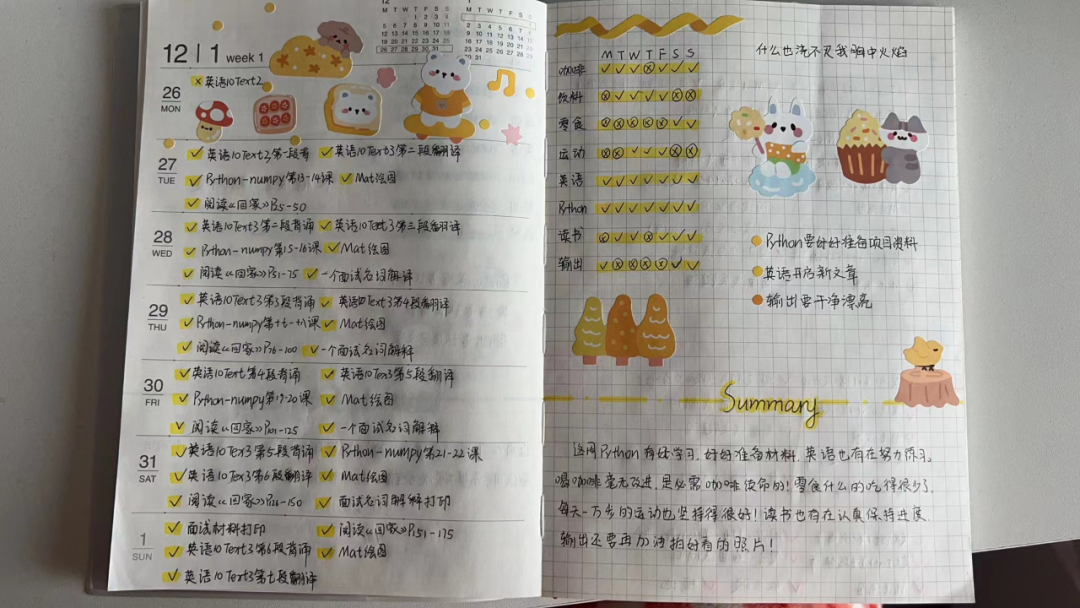 12 | 1 week 1
12
M T W T F S S
1 2 3 4
5 6 7 8 9 10 11
12 13 14 15 16 17 18
19 20 21 22 23 24 25
26 27 28 29 30 31
1
26 MON
× 英语10Text2
27 TUE
✓ 英语10Text2第一段背 ✓ 英语10Text3第二段翻译
✓ Python-numpy第13-14课 ✓ Mat绘图
✓ 阅读《回家》P25-50
28 WED
✓ 英语10Text3第二段背诵 ✓ 英语10Text3第三段翻译
✓ Python-numpy第15-16课 ✓ Mat绘图
✓ 阅读《回家》P51-75 ✓ 一个面试名词解释
29 THU
✓ 英语10Text3第3段背诵 ✓ 英语10Text3第4段翻译
✓ Python-numpy第十七-十八课 ✓ Mat绘图
✓ 阅读《回家》P76-100 ✓ 一个面试名词解释
30 FRI
✓ 英语10Text第4段背诵 ✓ 英语10Tex3第5段翻译
✓ Python-numpy第19-20课 ✓ Mat绘图
✓ 阅读《回家》P101-125 ✓ 一个面试名词解释
31 SAT
✓ 英语10Tex3第5段背诵 ✓ Python-numpy第21-22课
✓ 英语10Tex3第6段翻译 ✓ Mat绘图
✓ 阅读《回家》P126-150 ✓ 面试名词解释打印
1 SUN
✓ 面试材料打印 ✓ 阅读《回家》P151-175
✓ 英语10Text3第6段背诵 ✓ Mat绘图
✓ 英语10Text3第七段翻译
M T W T F S S
咖啡 ✓ ✓ ✓ ⊗ ✓ ✓ ✓
饮料 ⊗ ✓ ✓ ✓ ✓ ⊗ ⊗
零食 ⊗ ⊗ ⊗ ⊗ ⊗ ✓ ✓
运动 ⊗ ⊗ ✓ ✓ ✓ ⊗ ⊗
英语 ✓ ✓ ✓ ✓ ✓ ✓ ✓
Python ✓ ✓ ✓ ✓ ✓ ✓ ✓
读书 ⊗ ✓ ✓ ⊗ ✓ ✓ ✓
输出 ✓ ⊗ ⊗ ⊗ ⊗ ✓ ✓
什么也浇不灭我胸中火焰
Python要好好准备项目资料
英语开启新文章
输出要干净漂亮
Summary
这周Python有好好学习,好好准备材料,英语也有在努力练习。
喝咖啡毫无改进,是必需咖啡续命的!零食什么的吃得很少,
每天一万步的运动也坚持得很好!读书也有在认真保持进度,
输出还要再加油拍好看的照片!